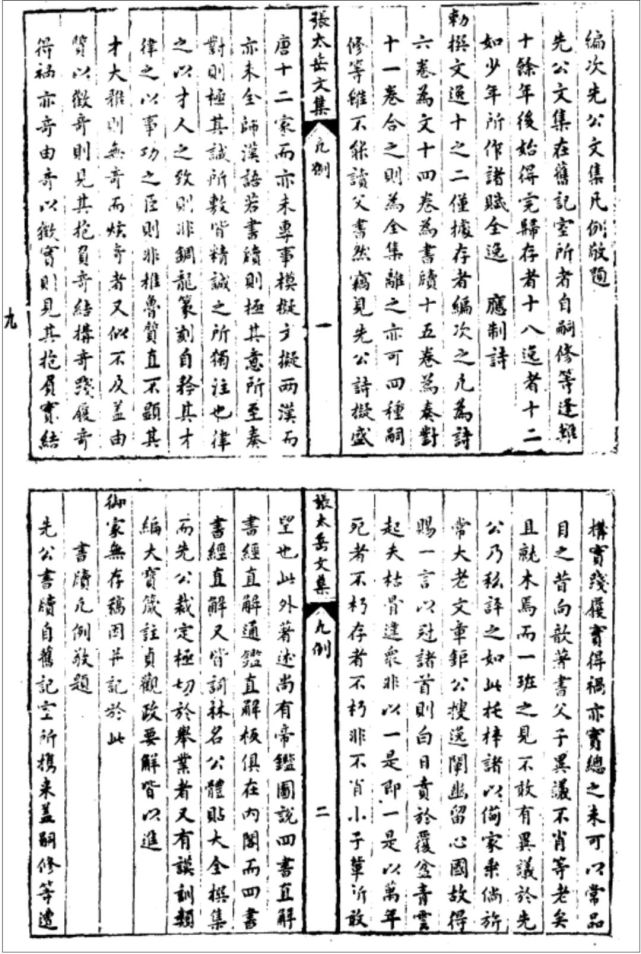 編次先公文集凡例敬題
先公文集在舊記室所者自嗣修等逢難
十餘年後始得完歸存者十八逸者十二
如少年所作諸賦全逸　應制詩
勅撰文逸十之二僅據存者編次之凡為詩
六卷為文十四卷為書牘十五卷為奏對
十一卷合之則為全集離之亦可四種嗣
修等雖不能讀父書然竊見先公詩擬盛
張太岳文集　凡例　一
唐十二家而亦未專事模擬文擬兩漢而
亦未全師漢語若書牘則極其意所至奏
對則極其誠所數皆精誠之所獨注也律
之以才人之致則非錭龍篆刻自矜其才
律之以事功之臣則非椎魯質直不顯其
才大雅則無奇而炫奇者又似不及蓋由
質以徵奇則見其抱負奇結構奇踐履奇
得禍亦奇由奇以徵實則見其抱負實結
九
構實踐履實得禍亦實總之未可以常品
目之昔向歆箸書父子異議不肖等老矣
且就木焉而一班之見不敢有異議於先
公乃私評之如此托梓諸以備家乘倘旂
常大老文章鉅公搜逸闡幽留心國故得
賜一言以冠諸首則白日賁於覆盆青雲
起夫枯骨違眾非以一是即一是以萬年
死者不朽存者不朽非不肖小子輩所敢
張太岳文集　凡例　二
望也此外著述尚有帝鑑圖說四書直解
書經直解通鑑直解板俱在內閣而四書
書經直解又皆詞林名公體貼大全撰集
而先公裁定極切於舉業者又有謨訓類
編大寶箴註貞觀政要解皆以進
御家無存稿因并記於此
書牘凡例敬題
先公書牘自舊記室所攜來蓋嗣修等遭